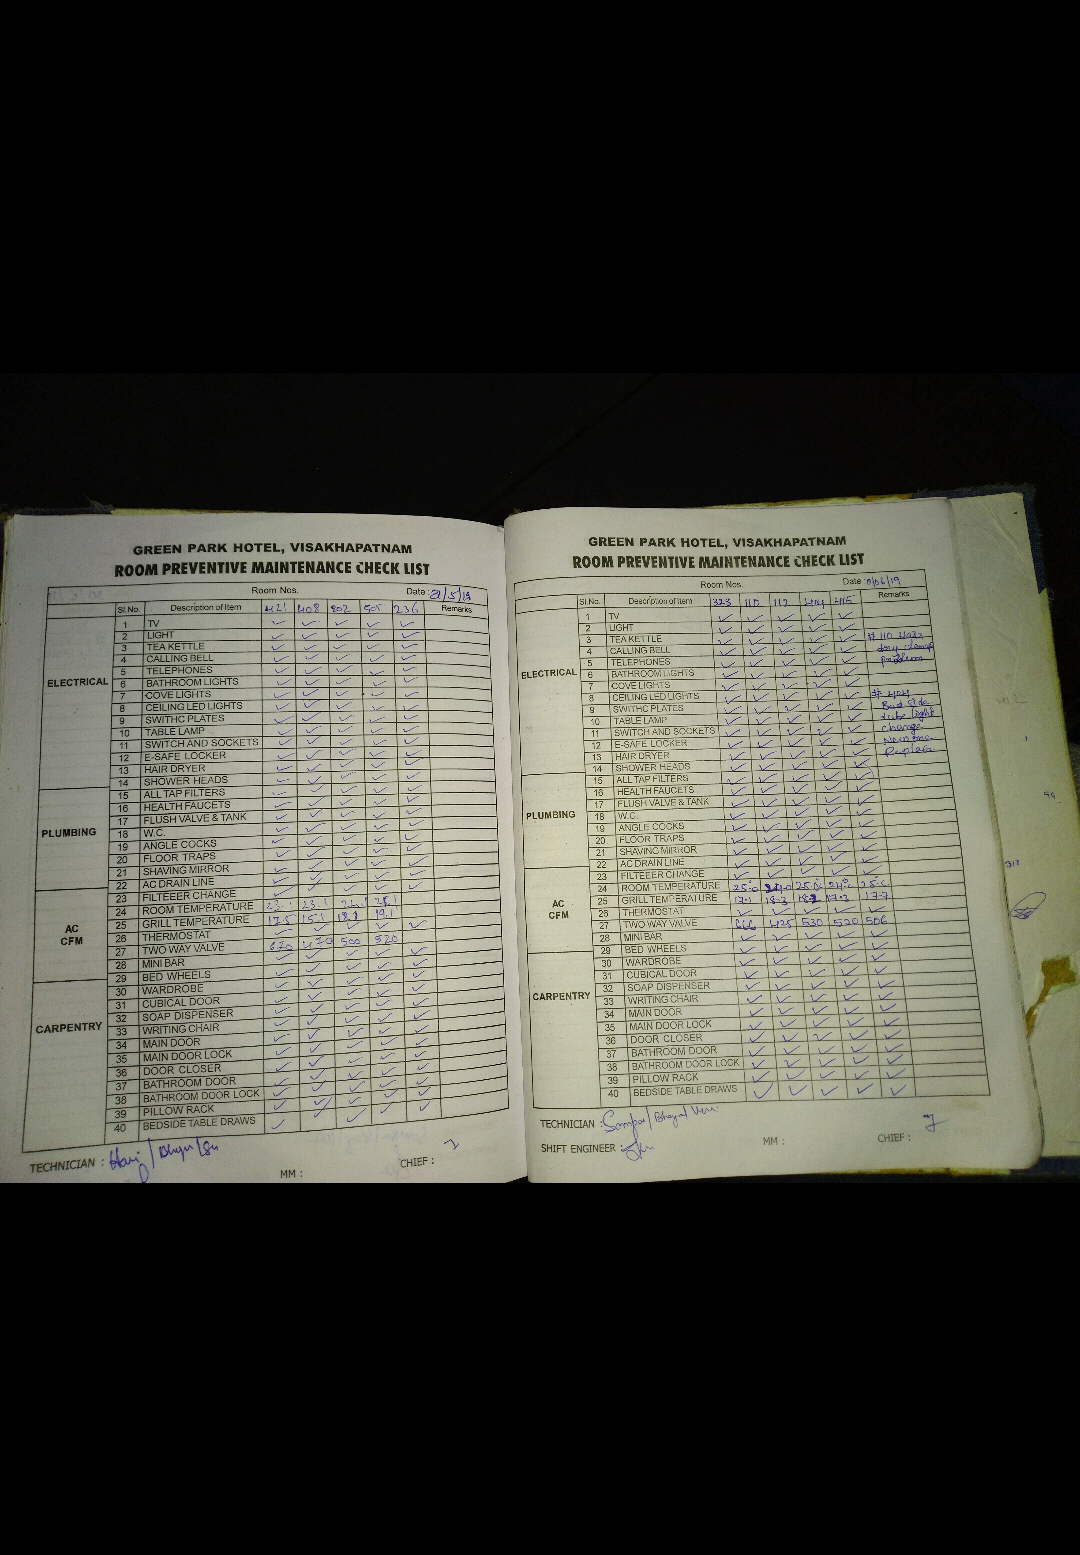 GREEN PARK HOTEL, VISAKHAPATNAM
ROOM PREVEINTIVE MAINTENANCE CHECK LIST
Room Nos. Date: 21/5/19
Sl.No. Description of Item 421 408 802 505 236 Remarks
ELECTRICAL
1 TV ✓ ✓ ✓ ✓ ✓
2 LIGHT ✓ ✓ ✓ ✓ ✓
3 TEA KETTLE ✓ ✓ ✓ ✓ ✓
4 CALLING BELL ✓ ✓ ✓ ✓ ✓
5 TELEPHONES ✓ ✓ ✓ ✓ ✓
6 BATHROOM LIGHTS ✓ ✓ ✓ ✓ ✓
7 COVE LIGHTS ✓ ✓ ✓ ✓ ✓
8 CEILING LED LIGHTS ✓ ✓ ✓ ✓ ✓
9 SWITHC PLATES ✓ ✓ ✓ ✓ ✓
10 TABLE LAMP ✓ ✓ ✓ ✓ ✓
11 SWITCH AND SOCKETS ✓ ✓ ✓ ✓ ✓
12 E-SAFE LOCKER ✓ ✓ ✓ ✓ ✓
13 HAIR DRYER ✓ ✓ ✓ ✓ ✓
14 SHOWER HEADS ✓ ✓ ✓ ✓ ✓
PLUMBING
15 ALL TAP FILTERS ✓ ✓ ✓ ✓ ✓
16 HEALTH FAUCETS ✓ ✓ ✓ ✓ ✓
17 FLUSH VALVE & TANK ✓ ✓ ✓ ✓ ✓
18 W.C. ✓ ✓ ✓ ✓ ✓
19 ANGLE COCKS ✓ ✓ ✓ ✓ ✓
20 FLOOR TRAPS ✓ ✓ ✓ ✓ ✓
21 SHAVING MIRROR ✓ ✓ ✓ ✓ ✓
22 AC DRAIN LINE ✓ ✓ ✓ ✓ ✓
AC CFM
23 FILTEEER CHANGE ✓ ✓ ✓ ✓ ✓
24 ROOM TEMPERATURE 23.1 23.1 22.1 25.1
25 GRILL TEMPERATURE 17.5 15.1 18.2 19.1
26 THERMOSTAT ✓ ✓ ✓ ✓ ✓
27 TWO WAY VALVE 670 470 500 520
28 MINI BAR ✓ ✓ ✓ ✓ ✓
29 BED WHEELS ✓ ✓ ✓ ✓ ✓
CARPENTRY
30 WARDROBE ✓ ✓ ✓ ✓ ✓
31 CUBICAL DOOR ✓ ✓ ✓ ✓ ✓
32 SOAP DISPENSER ✓ ✓ ✓ ✓ ✓
33 WRITING CHAIR ✓ ✓ ✓ ✓ ✓
34 MAIN DOOR ✓ ✓ ✓ ✓ ✓
35 MAIN DOOR LOCK ✓ ✓ ✓ ✓ ✓
36 DOOR CLOSER ✓ ✓ ✓ ✓ ✓
37 BATHROOM DOOR ✓ ✓ ✓ ✓ ✓
38 BATHROOM DOOR LOCK ✓ ✓ ✓ ✓ ✓
39 PILLOW RACK ✓ ✓ ✓ ✓ ✓
40 BEDSIDE TABLE DRAWS ✓ ✓ ✓ ✓ ✓
TECHNICIAN :
MM : CHIEF :
GREEN PARK HOTEL, VISAKHAPATNAM
ROOM PREVEINTIVE MAINTENANCE CHECK LIST
Room Nos. Date :01/06/19
Sl.No. Description of Item 323 110 112 414 415 Remarks
ELECTRICAL
1 TV ✓ ✓ ✓ ✓ ✓
2 LIGHT ✓ ✓ ✓ ✓ ✓
3 TEA KETTLE ✓ ✓ ✓ ✓ ✓ # 110
4 CALLING BELL ✓ ✓ ✓ ✓ ✓ lamp
5 TELEPHONES ✓ ✓ ✓ ✓ ✓ problem
6 BATHROOM LIGHTS ✓ ✓ ✓ ✓ ✓
7 COVE LIGHTS ✓ ✓ ✓ ✓ ✓
8 CEILING LED LIGHTS ✓ ✓ ✓ ✓ ✓ # 404
9 SWITHC PLATES ✓ ✓ ✓ ✓ ✓ Bad side
10 TABLE LAMP ✓ ✓ ✓ ✓ ✓ tube light
11 SWITCH AND SOCKETS ✓ ✓ ✓ ✓ ✓ change
12 E-SAFE LOCKER ✓ ✓ ✓ ✓ ✓ New one
13 HAIR DRYER ✓ ✓ ✓ ✓ ✓ Replace
14 SHOWER HEADS ✓ ✓ ✓ ✓ ✓
PLUMBING
15 ALL TAP FILTERS ✓ ✓ ✓ ✓ ✓
16 HEALTH FAUCETS ✓ ✓ ✓ ✓ ✓
17 FLUSH VALVE & TANK ✓ ✓ ✓ ✓ ✓
18 W.C. ✓ ✓ ✓ ✓ ✓
19 ANGLE COCKS ✓ ✓ ✓ ✓ ✓
20 FLOOR TRAPS ✓ ✓ ✓ ✓ ✓
21 SHAVING MIRROR ✓ ✓ ✓ ✓ ✓
22 AC DRAIN LINE ✓ ✓ ✓ ✓ ✓
AC CFM
23 FILTEEER CHANGE ✓ ✓ ✓ ✓ ✓
24 ROOM TEMPERATURE 25°c 24.0 25.0c 24°c 25°c
25 GRILL TEMPERATURE 17.1 18.3 18.2 17.3 17.7
26 THERMOSTAT ✓ ✓ ✓ ✓ ✓
27 TWO WAY VALVE 666 425 530 520 506
28 MINI BAR ✓ ✓ ✓ ✓ ✓
29 BED WHEELS ✓ ✓ ✓ ✓ ✓
CARPENTRY
30 WARDROBE ✓ ✓ ✓ ✓ ✓
31 CUBICAL DOOR ✓ ✓ ✓ ✓ ✓
32 SOAP DISPENSER ✓ ✓ ✓ ✓ ✓
33 WRITING CHAIR ✓ ✓ ✓ ✓ ✓
34 MAIN DOOR ✓ ✓ ✓ ✓ ✓
35 MAIN DOOR LOCK ✓ ✓ ✓ ✓ ✓
36 DOOR CLOSER ✓ ✓ ✓ ✓ ✓
37 BATHROOM DOOR ✓ ✓ ✓ ✓ ✓
38 BATHROOM DOOR LOCK ✓ ✓ ✓ ✓ ✓
39 PILLOW RACK ✓ ✓ ✓ ✓ ✓
40 BEDSIDE TABLE DRAWS ✓ ✓ ✓ ✓ ✓
TECHNICIAN :
SHIFT ENGINEER : MM : CHIEF :
313